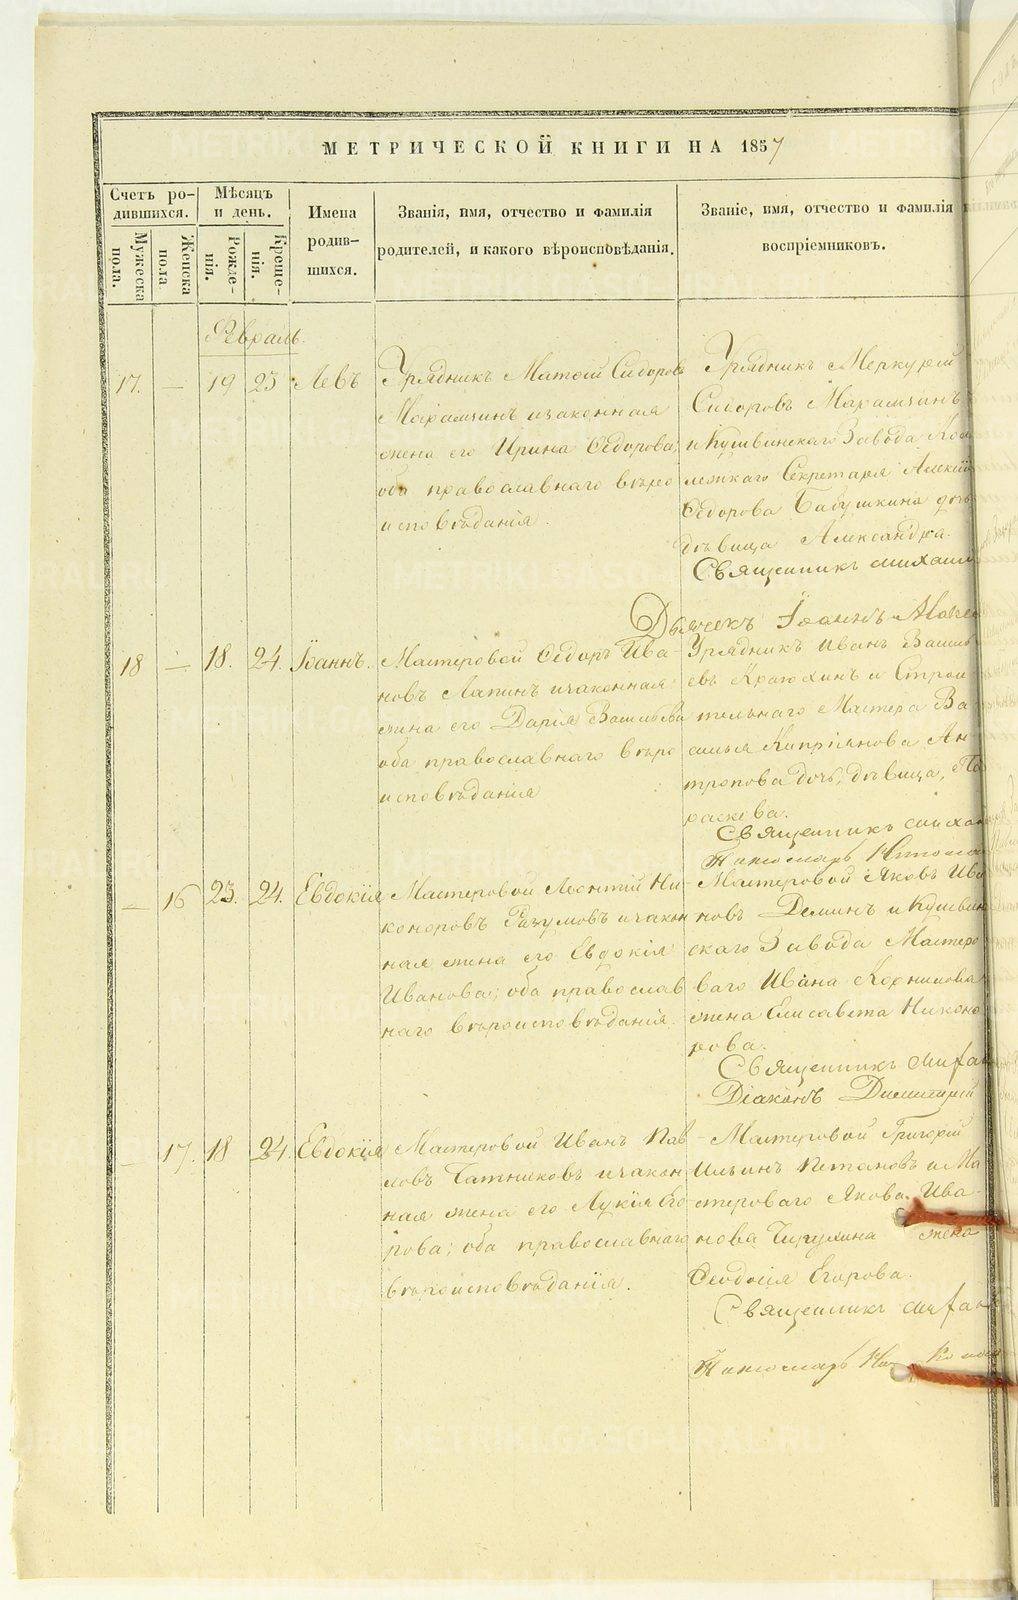 МЕТРИЧЕСКОЙ КНИГИ НА 1857
Счетъ ро-
дившихся.
Мужеска
пола.
Женска
пола
Мѣсяцъ
и день.
Рожде-
нія.
Креще-
нія.
Имена
родив-
шихся.
Званія, имя, отчество и фамилія
родителей, и какого вѣроисповѣданія.
Званіе, имя, отчество и фамилія
воспріемниковъ.
Февраль.
17. — 19 23 Левъ
Урядникъ Матѳій Сидоровъ
Марамзинъ и законная
жена его Ирина Ѳедорова;
оба православнаго вѣро
исповѣданія.
Урядникъ Меркурій
Сидоровъ Марамзинъ
и Кушвинскаго Завода Кол
лежскаго Секретаря Алексія
Ѳедорова Бабушкина дочь
дѣвица Александра.
Священникъ Михаил
Дьячекъ Іоаннъ
18 — 18. 24. Іоаннъ.
Мастеровой Ѳедоръ Ива-
новъ Лапинъ и законная
жена его Дарія Васильева
оба православнаго вѣро
исповѣданія
Урядникъ Иванъ Василь
евъ Краюхинъ и Строи
тельнаго Мастера Ва
силья Кипріянова Ан
тропова дочь, дѣвица, Па
раскева.
Священникъ Миха
Пономарь
— 16 23. 24. Евдокія
Мастеровой Леонтій Ни-
коноровъ Разумовъ и закон
ная жена его Евдокія
Иванова; оба православ
наго вѣроисповѣданія.
Мастеровой Яковъ Ива
новъ Деминъ и Кушвин
скаго Завода Мастеро
ваго Ивана Корнилова
жена Елисавета Никоно
рова.
Священникъ Миха
Діаконъ Димитрій
— 17. 18 24. Евдокія
Мастеровой Иванъ Пав-
ловъ и закон
ная жена его Лукія Его-
рова; оба православнаго
вѣроисповѣданія.
Мастеровой Григорій
Ильинъ и Ма
стероваго Якова Ива
нова жена
Ѳеодосія Егорова.
Священникъ Миха
Пономарь
METRIKI.GASO-URAL.RU